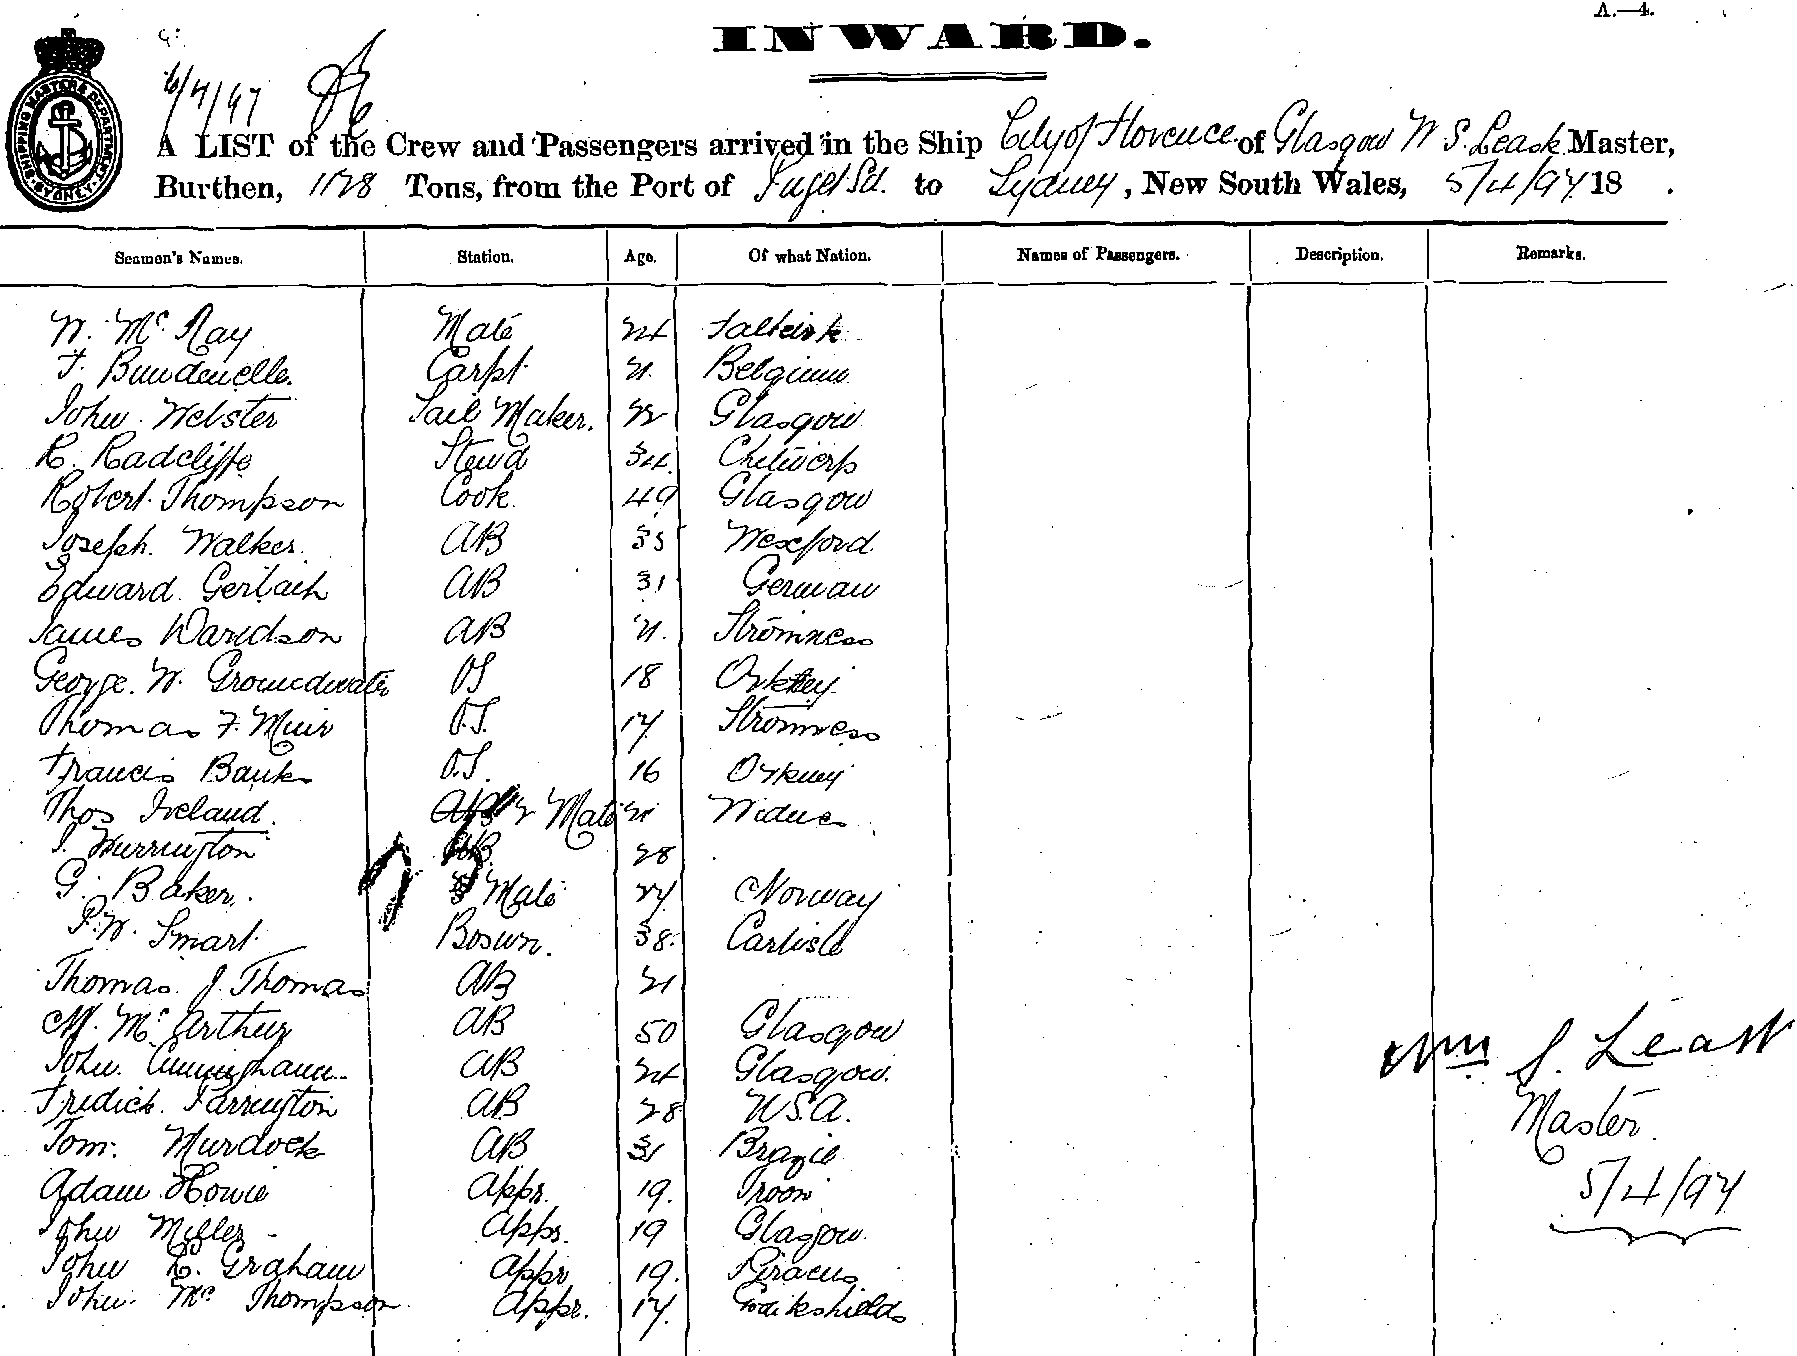 A.—4.
INWARD.
6/4/97
SHIPPING MASTERS DEPARTMENT SYDNEY
A LIST of the Crew and Passengers arrived in the Ship City of Florence of Glasgow W S. Leask Master,
Burthen, 1178 Tons, from the Port of Puget Sd. to Sydney, New South Wales, 5/4/97 18 .
Seamen's Names. Station. Age. Of what Nation. Names of Passengers. Description. Remarks.
W. Mc Ray Mate 24 Falkirk
F. Carpt. 21. Belgium
John Webster Sail Maker. 22 Glasgow
R. Radcliffe Stewd 34.
Robert Thompson Cook. 49 Glasgow
Joseph. Walker. AB 35 Wexford
Edward Gerlach AB 31 German
James Davidson AB 21. Stromness
George. W. Groundwater OS 18 Orkney
Thomas F. Muir O.S. 17. Stromness
Francis Banks O.S. 16 Orkney
Thos Ireland. AB 2 Mate 21 Widnes
AB. 28
G. Baker. Mate 27. Norway
P. W. Smart. Boswn. 38. Carlisle
Thomas. J. Thomas AB 21
M. Mc Arthur AB 50 Glasgow
John. Cunningham. AB 24 Glasgow.
Fredick. Parrington AB 28 U.S.A.
Tom. Murdock AB 31 Brazil
Adam Howie Appr. 19. Troon
John Miller Appr. 19 Glasgow.
John R. Graham Appr 19. Piraeus
John. Mc Thompson Appr. 17.
Wm S. Leask
Master.
5/4/97